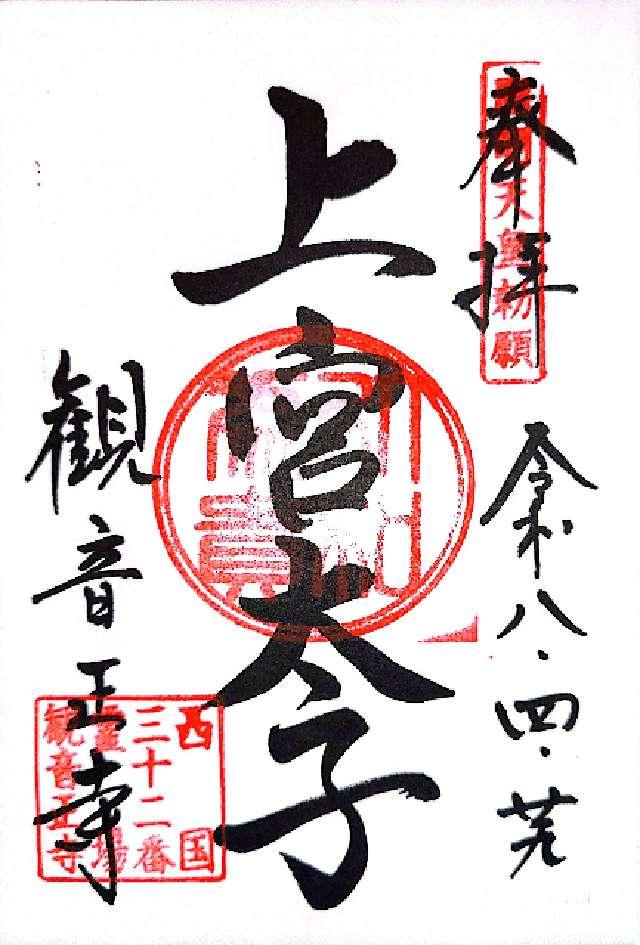 奉拝
天皇勅願
令和八.四.
上宮太子
観音正寺
西国
三十二番
霊場
観音正寺